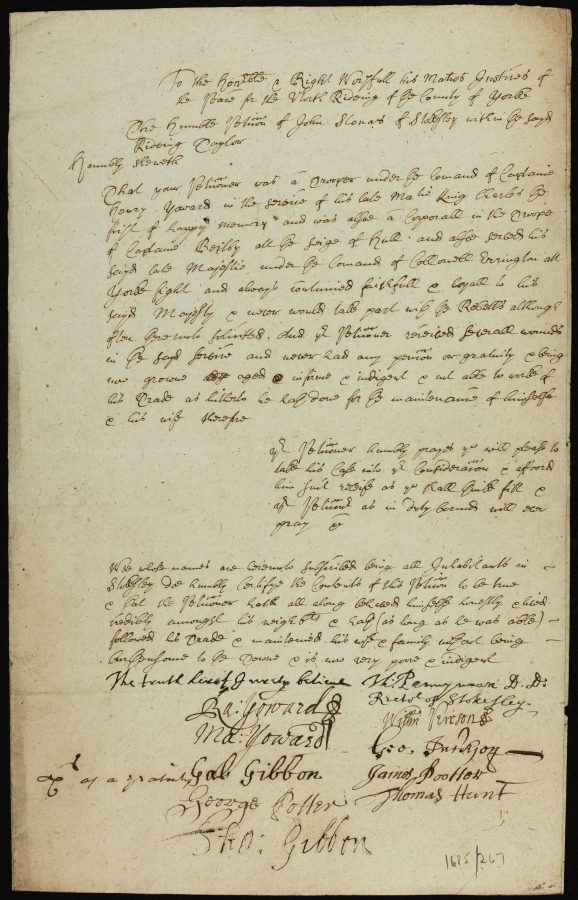 To the Honble & Right Worpfull his Maties Justices of
the Peace for the North Rideing of the County of Yorke
The Humble Petition of John of Stokesley within the sayd
Rideing Taylor
Humbly sheweth
That your Petitioner was a Trooper under the Comand of Captaine
Henry in the service of his late Matie King Charles the
first of happy memory and was alsoe a Corporall in the Troope
of Captaine att the seige of Hull. and alsoe served his
sayd late Majestie under the Comand of Collonell Errington att
Yorke fight and always continued faithfull & loyall to his
sayd Majesty & never would take part with the Rebells although
often thereunto solicited. And yr Petitioner received severall wounds
in the sayd service and never had any pension or gratuity & being
now growne aged infirme & indigent & not able to worke of
his Trade as hitherto he hath done for the maintenance of himselfe
& his wife therefore
yr Petitioner humbly prayes yu will please to
take his Case into yr Consideration & afford
him such releife as yu shall thinke fitt &
yr Petitioner as in duty bound will ever
pray &
Wee whose names are hereunto subscribed being all Inhabitants in
Stokesley doe humbly Certifye the Contents of this Petition to be true
& that the Petitioner hath all along behaved himselfe honestly & lived
credibly amongst his neighbrs & hath (as long as he was able)
followed his Trade & mainteined his wife & family without being
burthensome to the Towne & is now very poore & indigent
The truth hereof I verily believe Pennyman D. D.
Rectr of Stokesley.
Ra: Yoward
Ma: Yoward
Geo.
as a gratuity Gab Gibbon James Pootter
George Potter Thomas Hunt
Tho: Gibbon
1685/267